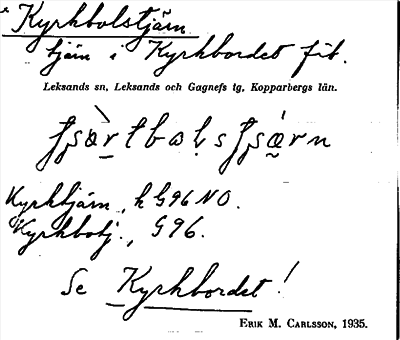 Kyrkbolstjärn
tjärn i Kyrkbordet fäb.
Leksands sn, Leksands och Gagnefs tg, Kopparbergs län.
Kyrktjärn, k G96 NO.
Kyrkbotj., G96.
Se Kyrkbordet!
ERIK M. CARLSSON, 1935.